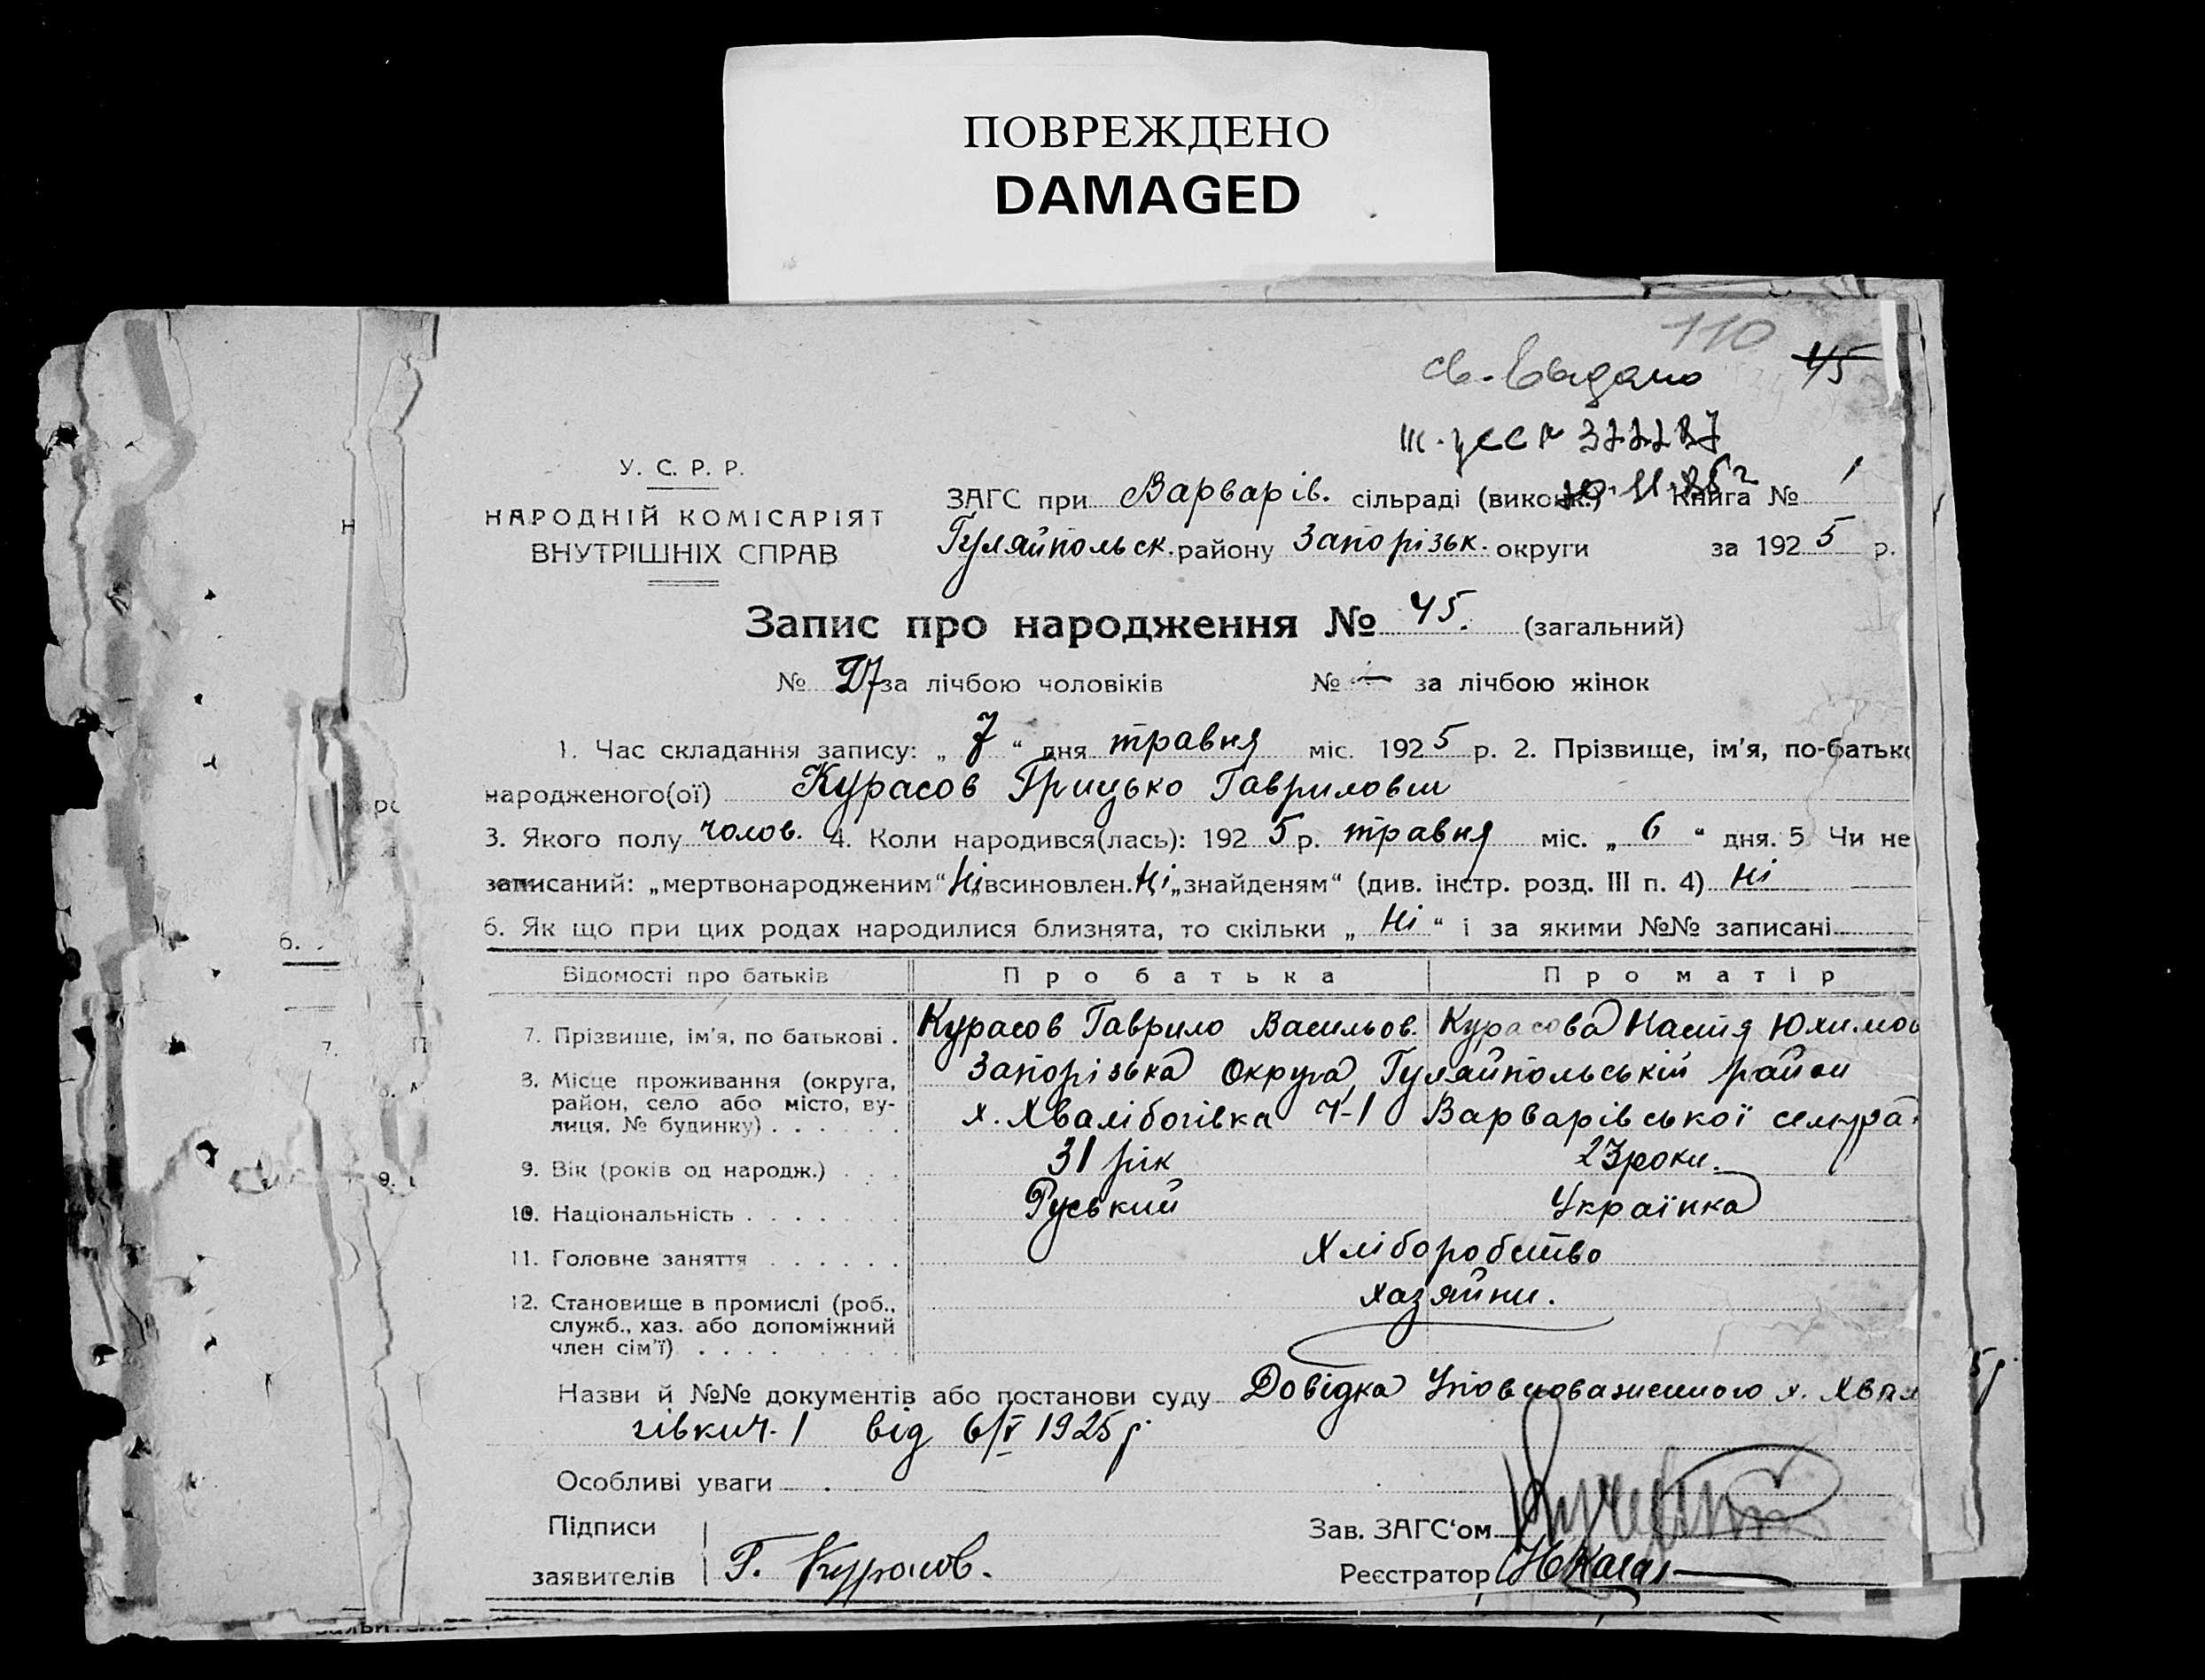 ПОВРЕЖДЕНО
DAMAGED
110
св. выдано 45
У. С. Р. Р.
НАРОДНІЙ КОМІСАРІЯТ
ВНУТРІШНІХ СПРАВ
ЗАГС при Варварів. сільраді (викон.) Книга № 1
Гуляйпольськ. району Запорізьк. округи за 1925 р.
Запис про народження № 45. (загальний)
№ 27 за лічбою чоловіків № — за лічбою жінок
1. Час складання запису: „ 7 “ дня травня міс. 1925 р. 2. Прізвище, ім’я, по-батько
народженого(ої) Курасов Грицько Гаврилович
3. Якого полу чолов. 4. Коли народився(лась): 1925 р. травня міс. „ 6 “ дня. 5 Чи не
записаний: „мертвонародженим“ Ні „всиновлен. Ні „знайденям“ (див. інстр. розд. III п. 4) Ні
6. Як що при цих родах народилися близнята, то скільки „ Ні “ і за якими №№ записані
Відомості про батьків Про батька Про матір
7. Прізвище, ім’я, по батькові . Курасов Гаврило Васильов. Курасова Настя Юхимов
8. Місце проживання (округа, Запорізька Округа, Гуляйпольській район
район, село або місто, ву-
лиця, № будинку) х. Хвалібогівка Ч-1 Варварівської сельра
9. Вік (років од народж.) 31 рік 23 роки.
10. Національність Руський Українка
11. Головне заняття Хліборобство
12. Становище в промислі (роб., хазяйни.
служб., хаз. або допоміжний
член сім’ї)
Назви й №№ документів або постанови суду Довідка Уповноваженного х. Хвал
гівки ч. 1 від 6/V 1925 р.
Особливі уваги
Підписи
заявителів Г. Курасов.
Зав. ЗАГС‘ом
Реєстратор